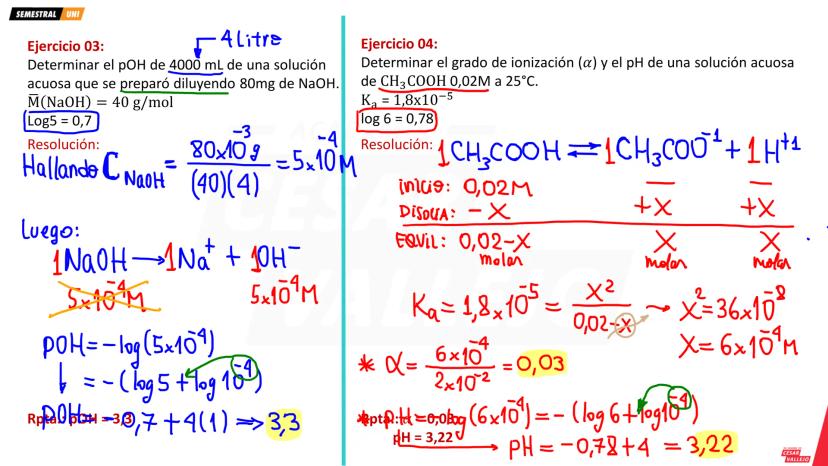 SEMESTRAL UNI
Ejercicio 03:
4 Litro
Determinar el pOH de 4000 mL de una solución
acuosa que se preparó diluyendo 80mg de NaOH.
M̅(NaOH) = 40 g/mol
Log5 = 0,7
Resolución:
Hallando C NaOH = 80x10⁻³g / (40)(4) = 5x10⁻⁴M
Luego:
1NaOH → 1Na⁺ + 1OH⁻
5x10⁻⁴M 5x10⁻⁴M
pOH = -log(5x10⁻⁴)
= -(log5 + log10⁻⁴)
pOH = -0,7 + 4(1) ⇒ 3,3
Rpta: pOH = 3,3
Ejercicio 04:
Determinar el grado de ionización (α) y el pH de una solución acuosa
de CH₃COOH 0,02M a 25°C.
Kₐ = 1,8x10⁻⁵
log 6 = 0,78
Resolución:
1CH₃COOH ⇌ 1CH₃COO⁻¹ + 1H⁺¹
inicio: 0,02M — —
Disocia: -X +X +X
EQUIL: 0,02-X X X
molar molar molar
Ka = 1,8x10⁻⁵ = X² / 0,02-X → X² = 36x10⁻⁸
X = 6x10⁻⁴M
* α = 6x10⁻⁴ / 2x10⁻² = 0,03
* pH = -log(6x10⁻⁴) = -(log6 + log10⁻⁴)
pH = 3,22
pH = -0,78 + 4 = 3,22
CESAR VALLEJO